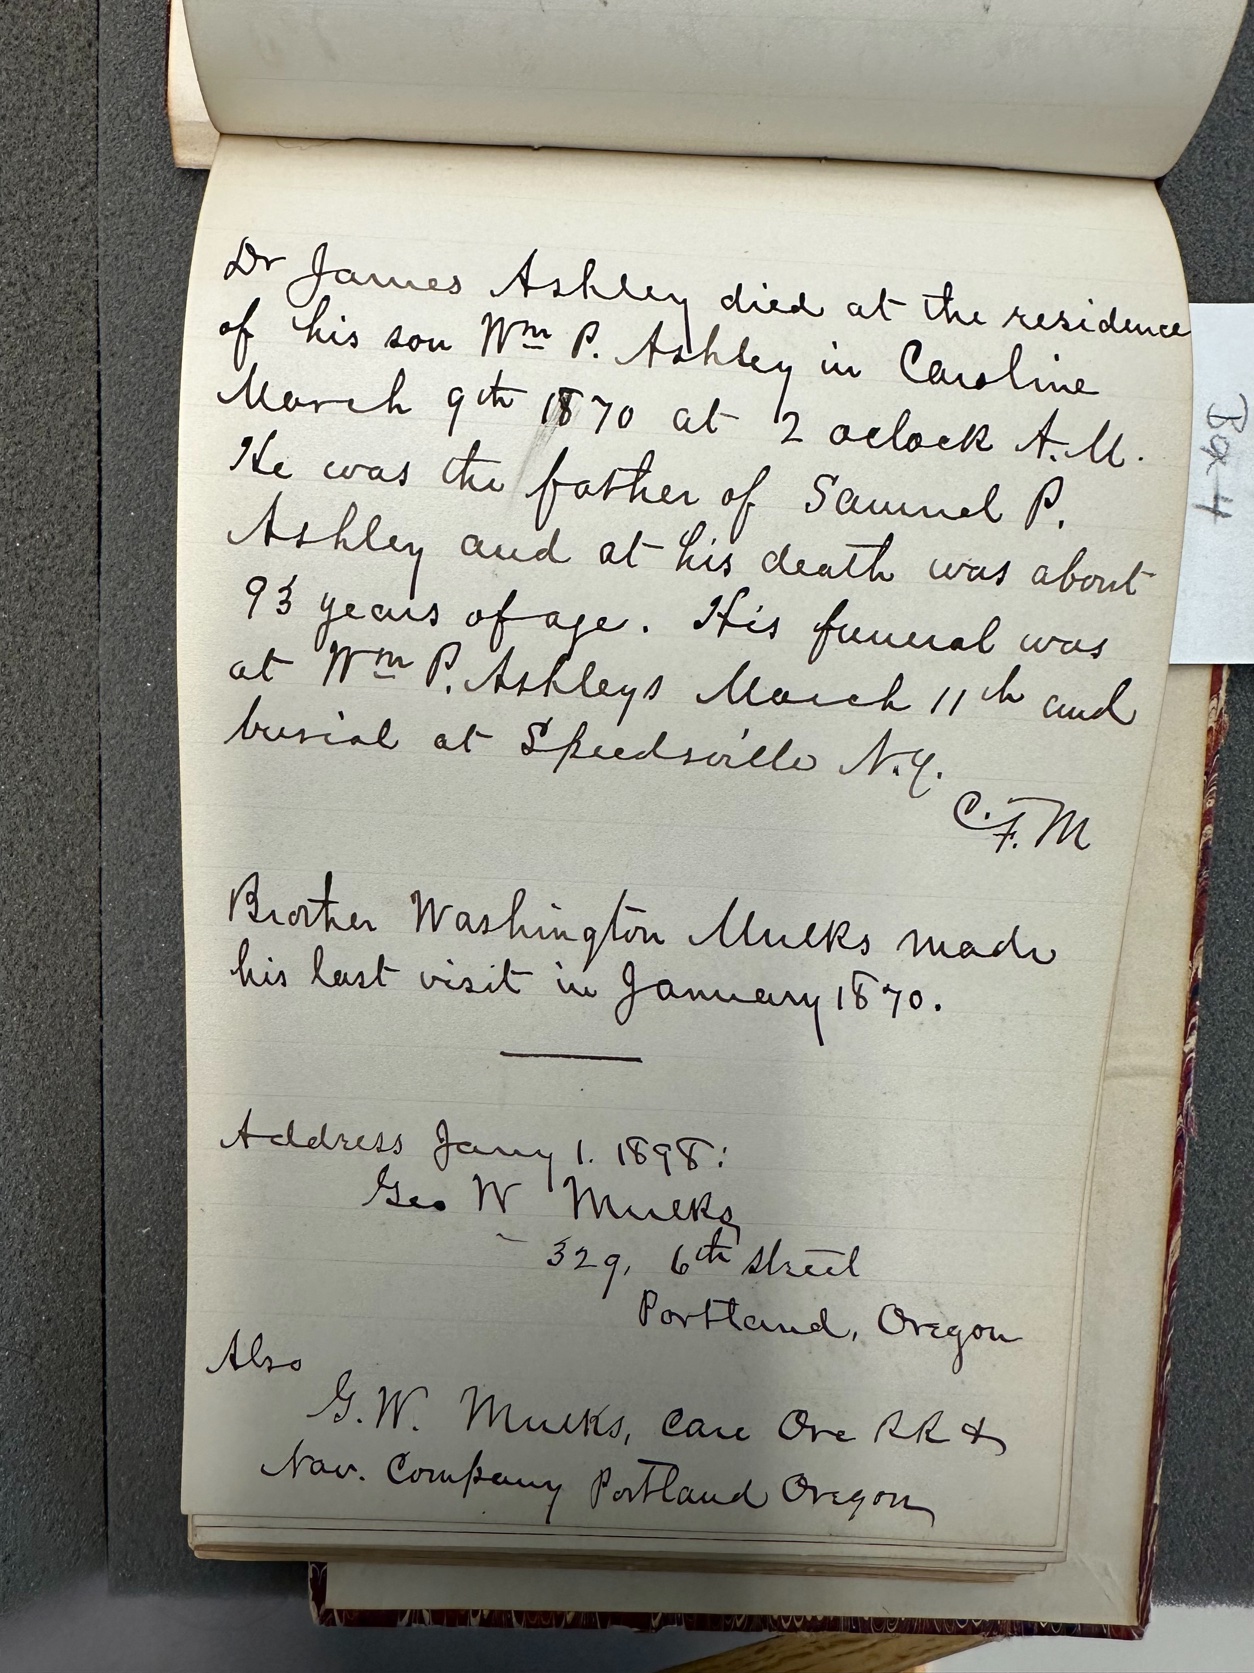 Dr James Ashley died at the residence
of his son Wm P. Ashley in Caroline
March 9th 1870 at 2 oclock A.M.
He was the father of Samuel P.
Ashley and at his death was about
93 years of age. His funeral was
at Wm P. Ashleys March 11th and
burial at Speedsville N.Y.
C.F.M
Brother Washington Mulks made
his last visit in January 1870.
Address Jany 1. 1898:
Geo W Mulks
329, 6th Street
Portland, Oregon
Also
G.W. Mulks, Care Ore RR &
Nav. Company Portland Oregon
Box 4